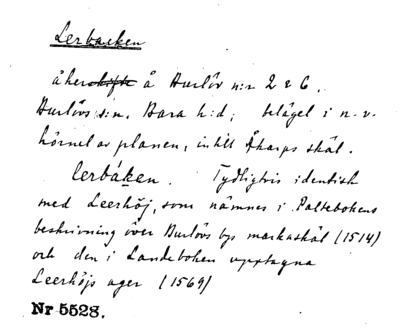 Lerbacken
åkerskifte å Burlöv n:r 2 & 6.
Burlövs s:n, Bara h:d; beläget i n.v.
hörnet av planen, intill Åkarps skäl.
lerbáken. Tydligtvis identisk
med Leerhöj, som nämnes i Paltebokens
beskrivning över Burlövs bys markaskäl (1514)
och den i Landeboken upptagna
Leerhöjs ager (1569)
Nr 5528.